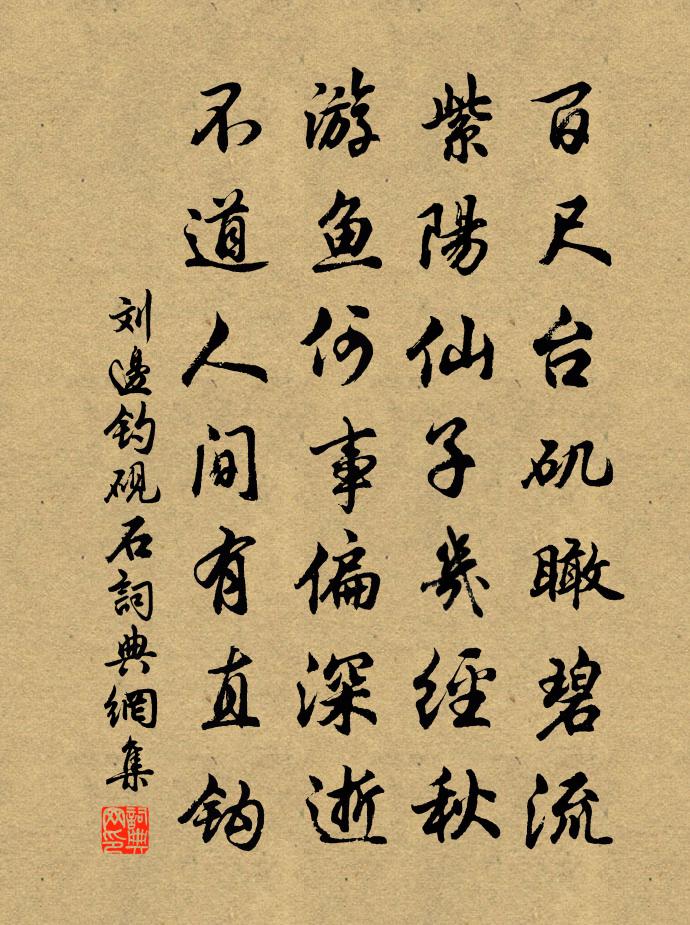 百尺台矶瞰碧流
紫陽仙子幾經秋
游鱼何事偏深逝
不道人间有直钩
刘邊钓砚石詞典網集
詞典網印